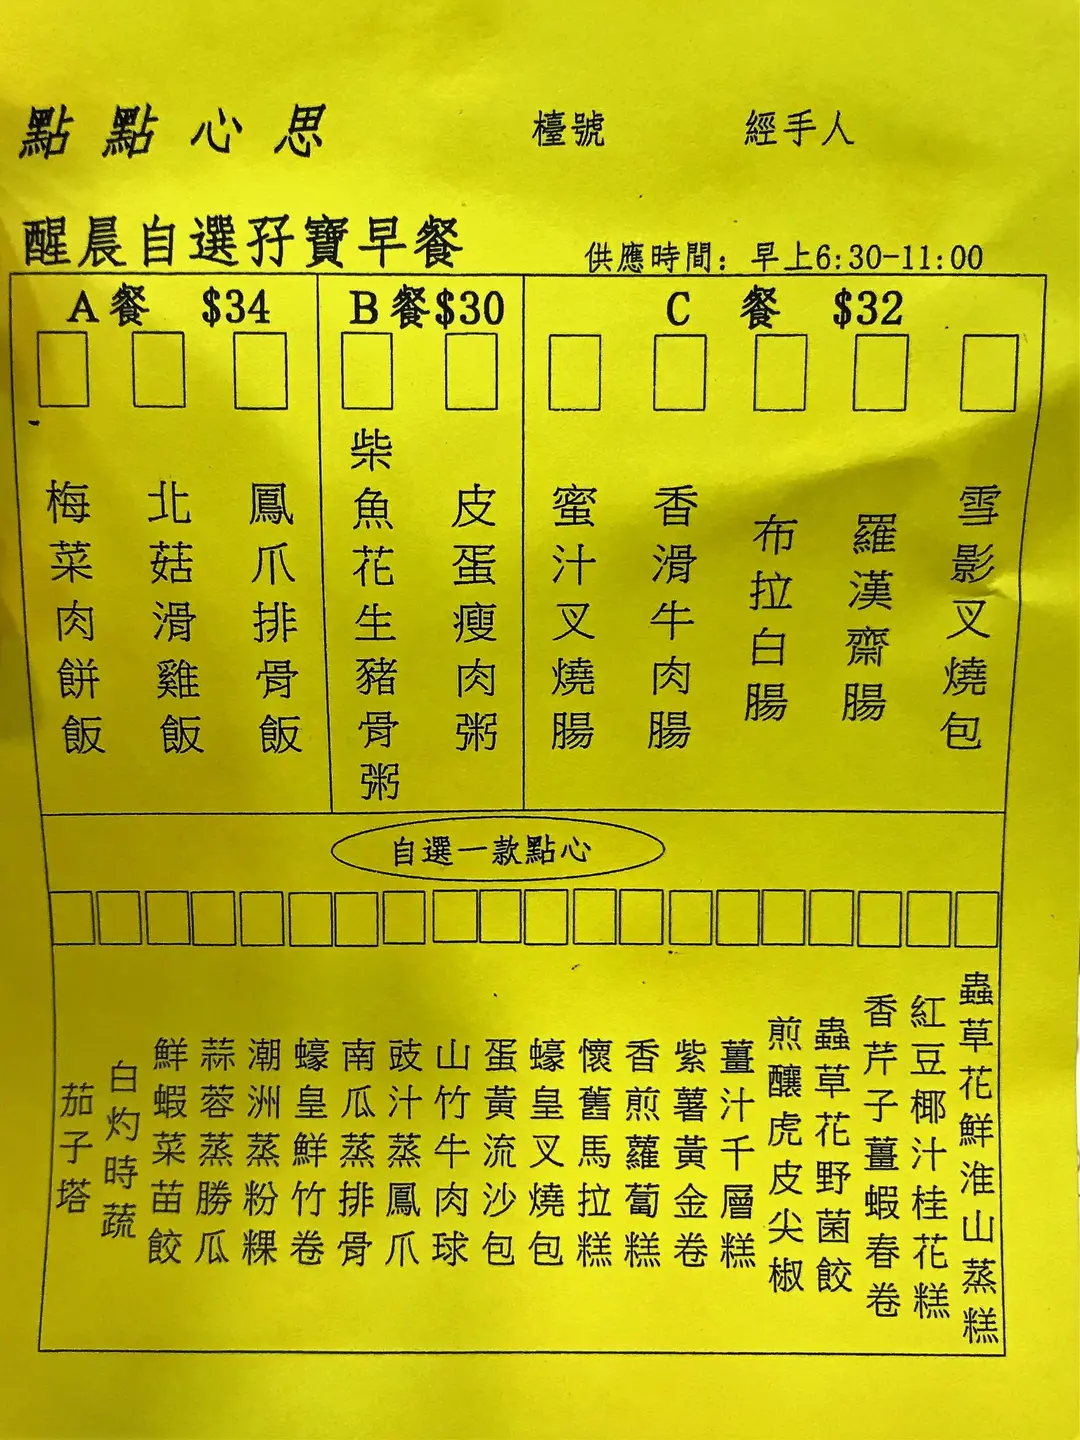 點點心思
檯號
經手人
醒晨自選孖寶早餐
供應時間：早上6:30-11:00
A餐 $34
梅菜肉餅飯
北菇滑雞飯
鳳爪排骨飯
B餐$30
柴魚花生豬骨粥
皮蛋瘦肉粥
C 餐 $32
蜜汁叉燒腸
香滑牛肉腸
布拉白腸
羅漢齋腸
雪影叉燒包
自選一款點心
茄子塔
白灼時蔬
鮮蝦菜苗餃
蒜蓉蒸勝瓜
潮洲蒸粉粿
蠔皇鮮竹卷
南瓜蒸排骨
豉汁蒸鳳爪
山竹牛肉球
蛋黃流沙包
蠔皇叉燒包
懷舊馬拉糕
香煎蘿蔔糕
紫薯黃金卷
薑汁千層糕
煎釀虎皮尖椒
蟲草花野菌餃
香芹子薑蝦春卷
紅豆椰汁桂花糕
蟲草花鮮淮山蒸糕